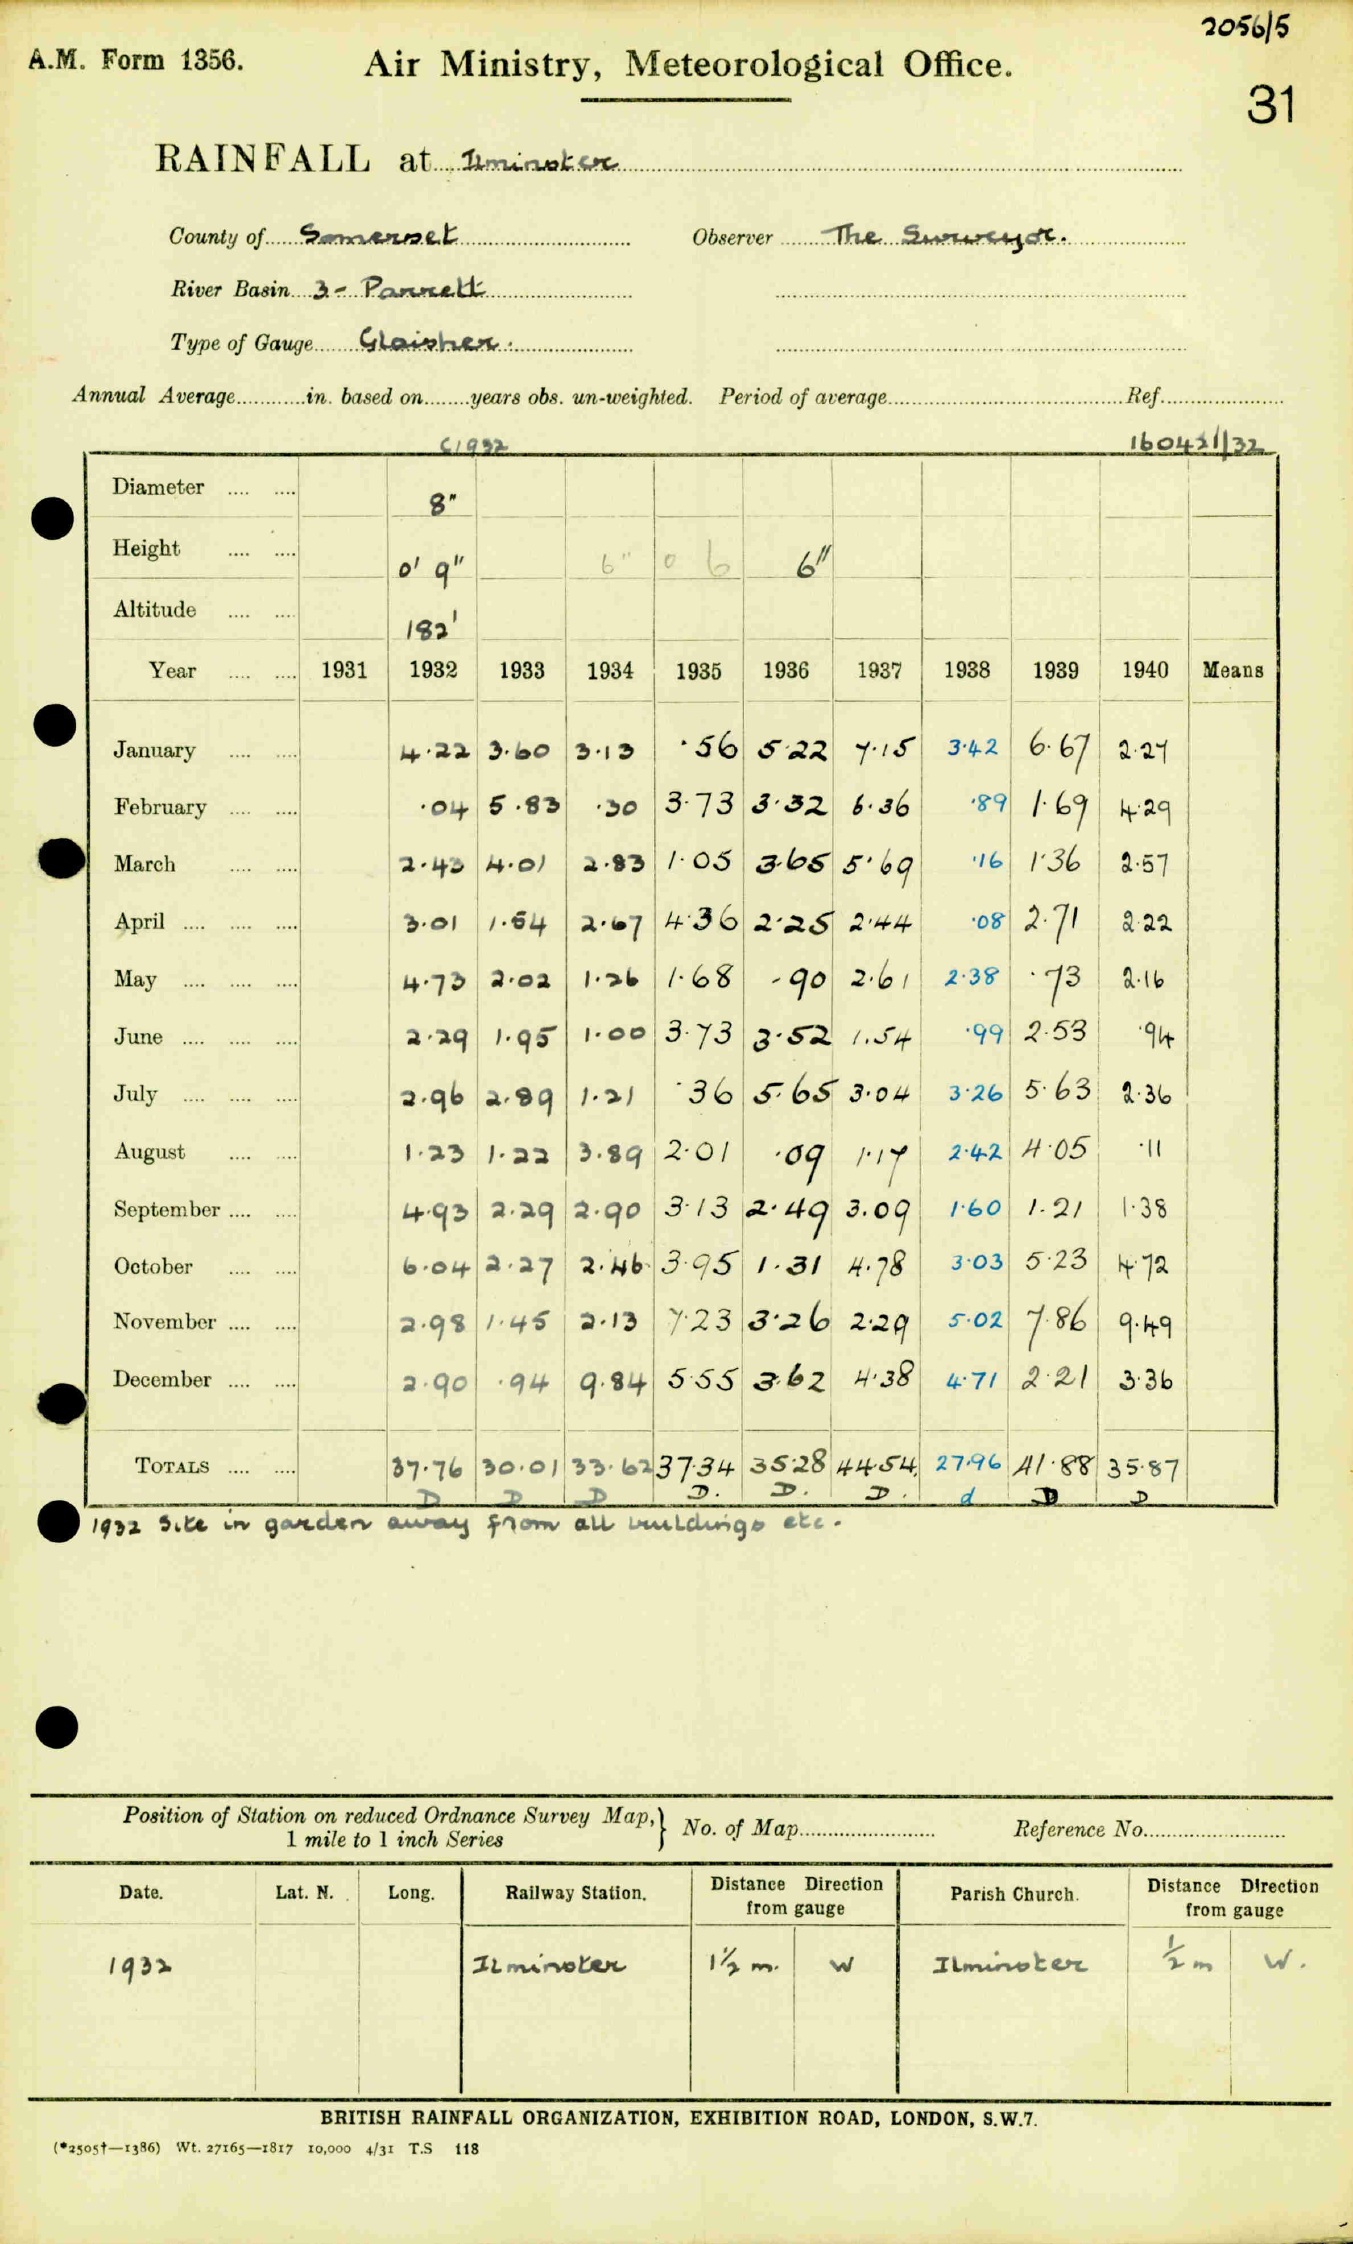 2056/5
A.M. Form 1356. Air Ministry, Meteorological Office.
31
RAINFALL at Ilminster
County of Somerset Observer The Surveyor.
River Basin 3 - Parrett
Type of Gauge Glaisher.
Annual Average in. based on years obs. un-weighted. Period of average Ref.
1932
Diameter 8"
Height 0' 9" 6" 0 6 6"
Altitude 182'
Year 1931 1932 1933 1934 1935 1936 1937 1938 1939 1940 Means
January 4.22 3.60 3.13 .56 5.22 7.15 3.42 6.67 2.27
February .04 5.83 .30 3.73 3.32 6.36 .89 1.69 4.29
March 2.43 4.01 2.83 1.05 3.65 5.69 .16 1.36 2.57
April 3.01 1.54 2.67 4.36 2.25 2.44 .08 2.71 2.22
May 4.73 2.02 1.26 1.68 .90 2.61 2.38 .73 2.16
June 2.29 1.95 1.00 3.73 3.52 1.54 .99 2.53 .94
July 2.96 2.89 1.21 .36 5.65 3.04 3.26 5.63 2.36
August 1.23 1.22 3.89 2.01 .09 1.17 2.42 4.05 .11
September 4.93 2.29 2.90 3.13 2.49 3.09 1.60 1.21 1.38
October 6.04 2.27 2.46 3.95 1.31 4.78 3.03 5.23 4.72
November 2.98 1.45 2.13 7.23 3.26 2.29 5.02 7.86 9.49
December 2.90 .94 9.84 5.55 3.62 4.38 4.71 2.21 3.36
TOTALS 37.76 30.01 33.62 37.34 35.28 44.54 27.96 41.88 35.87
D D D D. D. D. d D D
1932 Site in garden away from all buildings etc.
Position of Station on reduced Ordnance Survey Map,} No. of Map Reference No.
1 mile to 1 inch Series
Date. Lat. N. Long. Railway Station. Distance Direction from gauge Parish Church. Distance Direction from gauge
1932 Ilminster 1½ m. W Ilminster ½ m W.
BRITISH RAINFALL ORGANIZATION, EXHIBITION ROAD, LONDON, S.W.7.
(*2505†—1386) Wt. 27165—1817 10,000 4/31 T.S 118